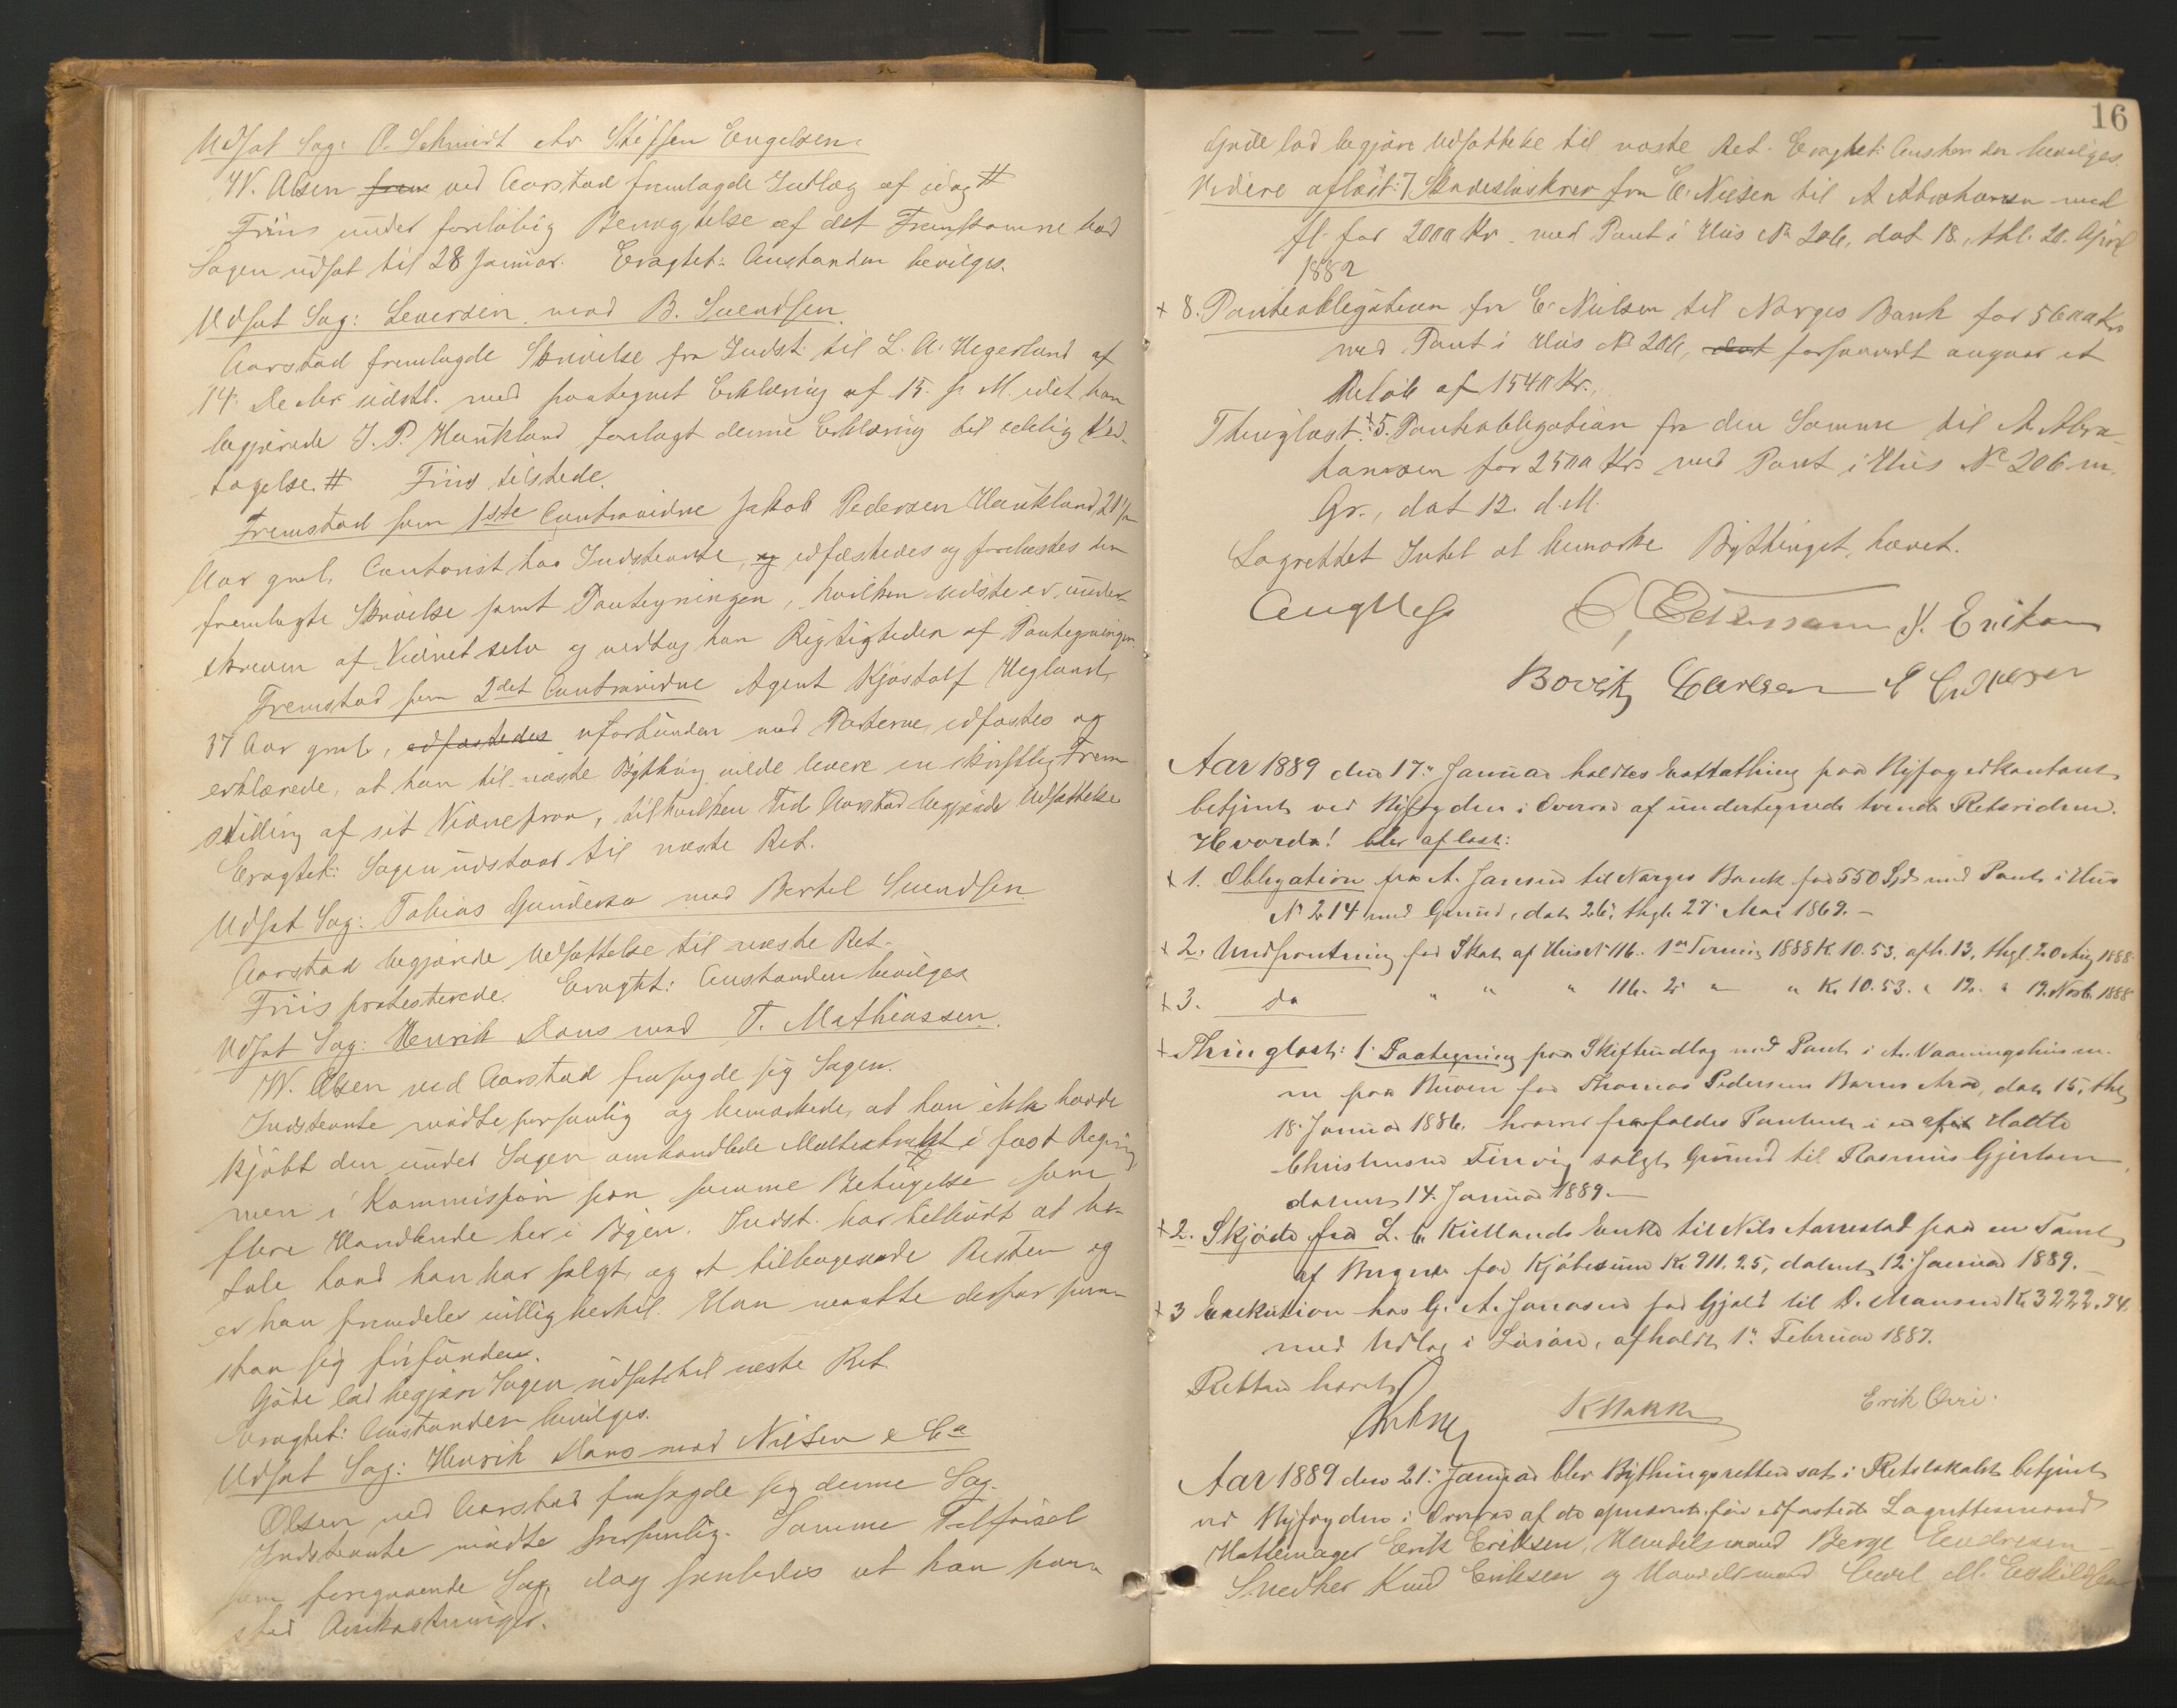 Udsat Sag: O. Schmidt ctr Steffen Engelsen.
W. Olsen frem ved Aarstad fremlagde Indlæg af idag #
Friis under foreløbig Benægtelse af det Fremkomne bad
Sagen udsat til 28 Januar. Eragtet: Anstanden bevilges.
Udsat Sag: Leversen mod B. Svendsen.
Aarstad fremlagde Skrivelse fra Indst. til L. A. Hegerlund af
14 Decbr sidstl. med paategnet Erklæring af 15. s. M. idet han
begjærede J. P. Haukland forelagt denne Erklæring til edelig Ved-
tagelse. # Friis tilstede.
Fremstod som 1ste Contravidne Jakob Pedersen Haukland, 21
Aar gml. Contorist hos Indstevnte, og edfæstedes og forelæstes den
fremlagte Skrivelse samt Paategningen, hvilken sidste er under-
skreven af Vidnet selv og vedtog han Rigtigheden af Paategningen.
Fremstod som 2det Contravidne Agent Kjøstolf Hegland,
37 Aar gml., edfæstedes uforbunden med Parterne, edfæstes og
erklærede, at han til næste Bything vilde levere en skriftlig Frem-
stilling af sit Vidneprov, til hvilken Tid Aarstad begjærede Udsættelse
Eragtet: Sagen udstaar til næste Ret.
Udsat Sag: Tobias Gundersen mod Bertel Svendsen
Aarstad begjærede Udsættelse til næste Ret.
Friis protesterede. Eragtet: Anstanden bevilges
Udsat Sag: Henrik Dons mod T. Mathiassen.
W. Olsen ved Aarstad frasagde sig Sagen.
Indstevnte mødte personlig og bemærkede, at han ikke havde
kjøbt den under Sagen omhandlede Maltextrakt i fast Regning
men i Kommission paa samme Betingelse som
flere Handlende her i Byen. Indst. har tilbudt at be-
tale hvad han har solgt, og at tilbagesende Resten og
er han fremdeles villig hertil. Han maatte derfor paa-
staa sig frifunden.
Gjøde lod begjære Sagen udsat til næste Ret
Eragtet: Anstanden bevilges.
Udsat Sag: Henrik Dons mod Nielsen & Co
Olsen ved Aarstad frasagde sig denne Sag.
Indstevnte mødte personlig. Samme Tilførsel
som foregaaende Sag, dog saaledes at han paa-
stod Omkostninger.
16
Gjøde lod begjære Udsættelse til næste Ret. Eragtet: Anstanden bevilges.
Videre aflæst: 7 Skadesløsbrev fra E. Nielsen til A Abrahamsen med
fl. for 2000 Kr. med Pant i Hus No 206, dat 18, thl. 20. April
1882
+ 8. Panteobligation fra E. Nielsen til Norges Bank for 5600 Kr
med Pant i Hus No 206, dat forsaavidt angaar et
Beløb af 1540 Kr.,
Thinglæst: 5. Panteobligation fra den Samme til A. Abra-
hamsen for 2500 Kr. med Pant i Hus No 206 m.
Gr., dat 12. d.M.
Lagrettet Intet at bemærke Bythinget hævet.
J. Eriksen
Carlsen
Aar 1889 den 17. Januar holdtes Extrathing paa Byfogedkontoret
betjent ved Byfogden i Overvær af undertegnede tvende Retsvidner.
Hvorda! blev aflæst:
+ 1. Obligation fra A. Jansen til Norges Bank for 550 Spd med Pant i Hus
No 214 med Grund, dat 26, thgl. 27 Mai 1869. –
+ 2. Udpantning for Skat af Hus No 116. 1ste Termin 1888 K. 10.53. afh. 13, thgl. 20 Aug 1888.
+ 3. do " " " 116. 2. " " K. 10.53. " 12. " 19. Novb. 1888
+ Thinglæst: 1. Paategning paa Skifteudlæg med Pant i et Vaaningshus m.
m paa for Thomas Pedersens Barns Arv, dat 15, thl
18 Januar 1886, hvorved frafaldes Panteret i en af Hattem.
Christensen Tinvig solgt Grund til Rasmus Gjertsen,
dateret 14. Januar 1889. –
+ 2. Skjøde fra L. C. Kiellands Enke til Nils Aarrestad paa en Tomt
af for Kjøbesum Kr. 911.25, dateret 12 Januar 1889. –
+ 3 Exekution hos G. A. Jonasen for Gjæld til D. Mansen K. 3222.94.
med Udlæg i Løsøre, afholdt 1. Februar 1887.
Retten hævet
Erik Qvie.
Aar 1889 den 21. Januar blev Bythingsretten sat i Retslokalet betjent
ved Byfogden i Overvær af de opnævnte før edfæstede Lagrettesmænd
Hattemager Erik Eriksen, Handelsmand Berge Endresen
Snedker Knud Eriksen og Handelsmand Carl M. Eskildsen